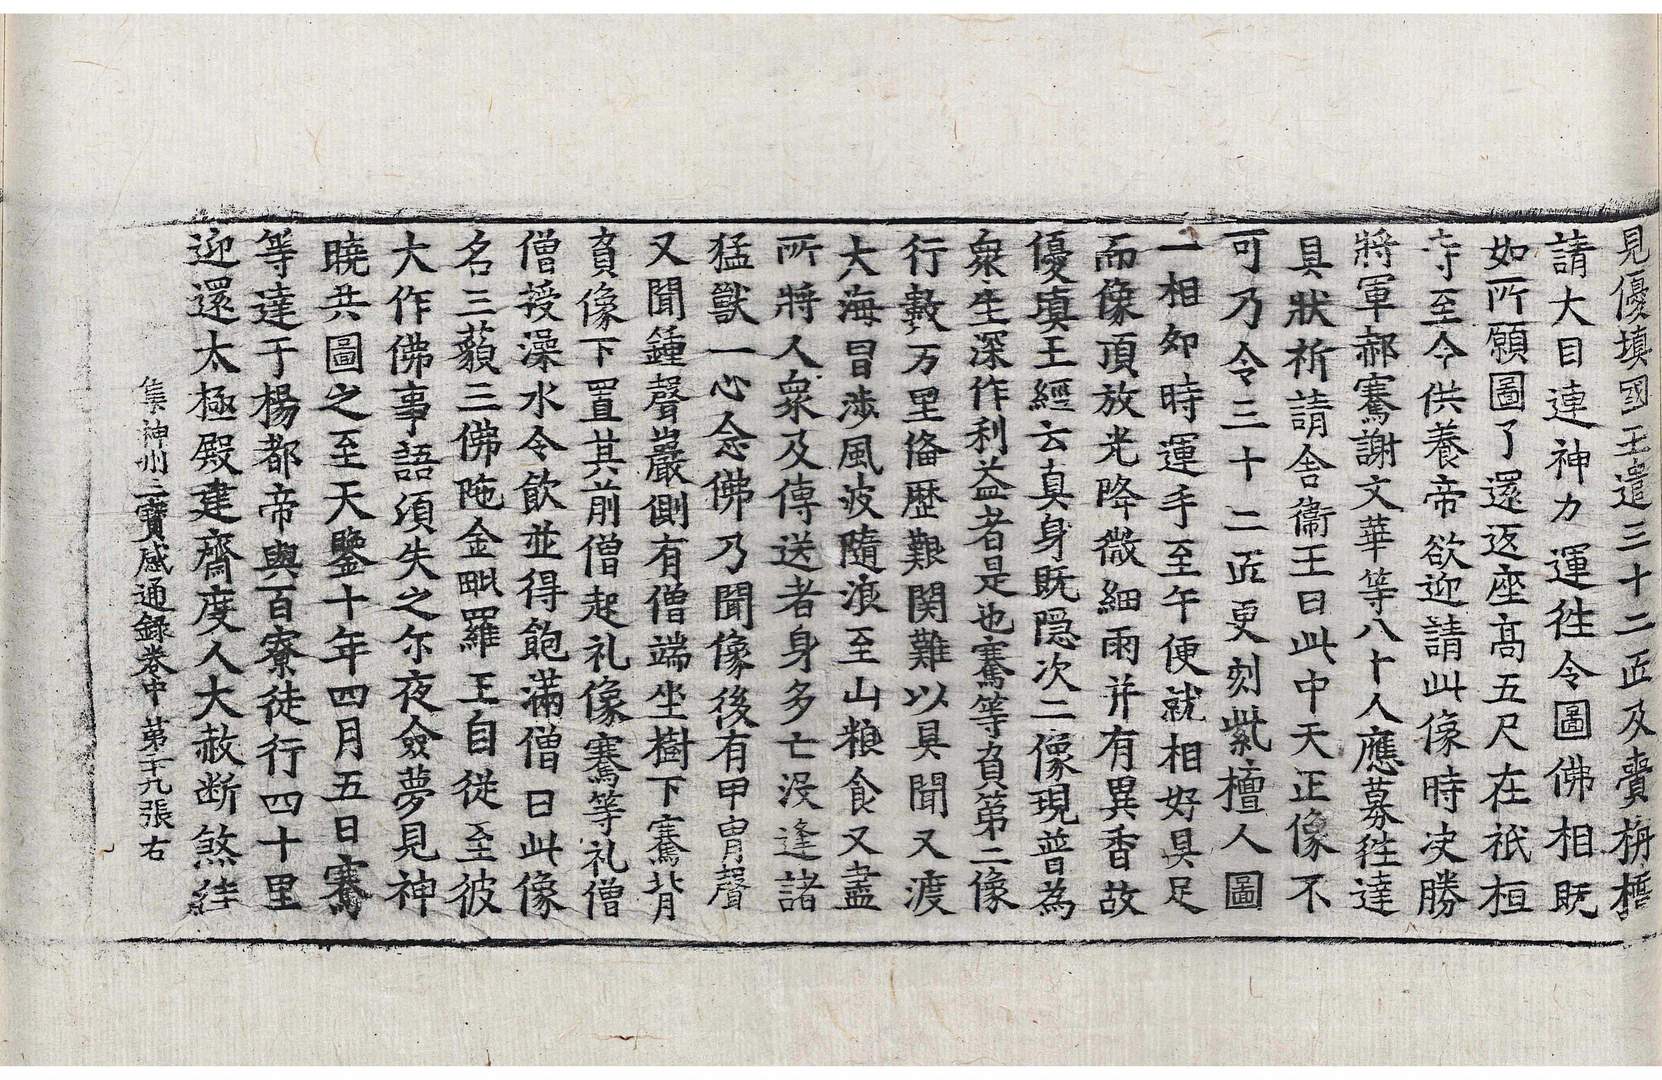 見優填國王遣三十二匠及賫栴檀
請大目連神力運徃令圖佛相既
如所願圖了還返座高五尺在祇桓
寺至今供養帝欲迎請此像時决勝
將軍郝騫謝文華等八十人應募徃達
具狀祈請舍衞王曰此中天正像不
可乃令三十二匠更刻紫檀人圖
一相卯時運手至午便就相好具足
而像頂放光降微細雨并有異香故
優填王經云真身既隠次二像現普為
衆生深作利益者是也騫等負第二像
行數万里俻歷艱関難以具聞又渡
大海冒涉風波隨浪至山粮食又盡
所將人衆及傳送者身多亡没逢諸
猛獸一心念佛乃聞像後有甲冑聲
又聞鍾聲巖側有僧端坐樹下騫背
負像下置其前僧起礼像騫等礼僧
僧授澡水令飲並得飽滿僧曰此像
名三藐三佛陁金毗羅王自從至彼
大作佛事語須失之尒夜僉夢見神
曉共圖之至天鑒十年四月五日騫
等達于楊都帝與百寮徒行四十里
迎還太極殿建齋度人大赦断煞絓
集神州三寶感通錄卷中 第十九張右